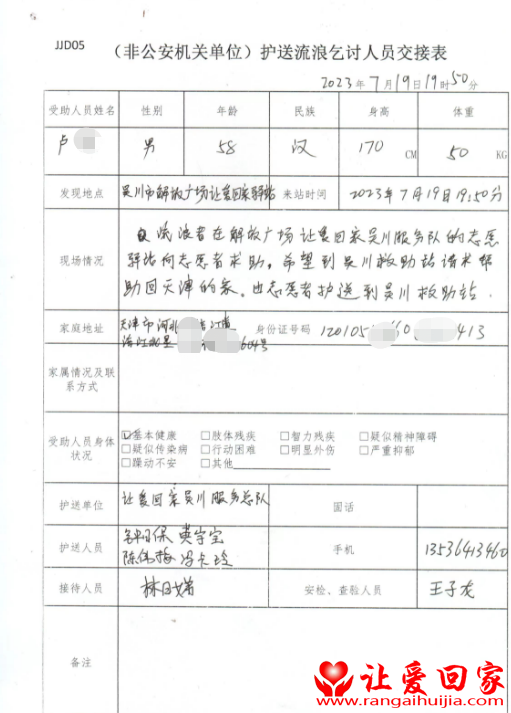 JJD05
（非公安机关单位）护送流浪乞讨人员交接表
2023年7月19日19时50分
受助人员姓名 性别 年龄 民族 身高 体重
卢 男 58 汉 170 CM 50 KG
发现地点 吴川市解放广场让爱回家驿站 来站时间 2023年7月19日19:50分
现场情况 流浪者在解放广场让爱回家吴川服务队的志愿
驿站向志愿者求助，希望到吴川救助站请求帮
助回天津的家。由志愿者护送到吴川救助站.
家庭地址 天津市河北 江道 身份证号码 120105 60 413
604号
家属情况及联
系方式
受助人员身体
状况
☑基本健康 □肢体残疾 □智力残疾 □疑似精神障碍
□疑似传染病 □行动困难 □明显外伤 □严重抑郁
□躁动不安 □其他
护送单位 让爱回家吴川服务总队 固话
护送人员 保 宝
陈伟梅 手机 13536413460
接待人员 林日 安检、查验人员 王子龙
备注
让爱回家
www.rangaihuijia.com